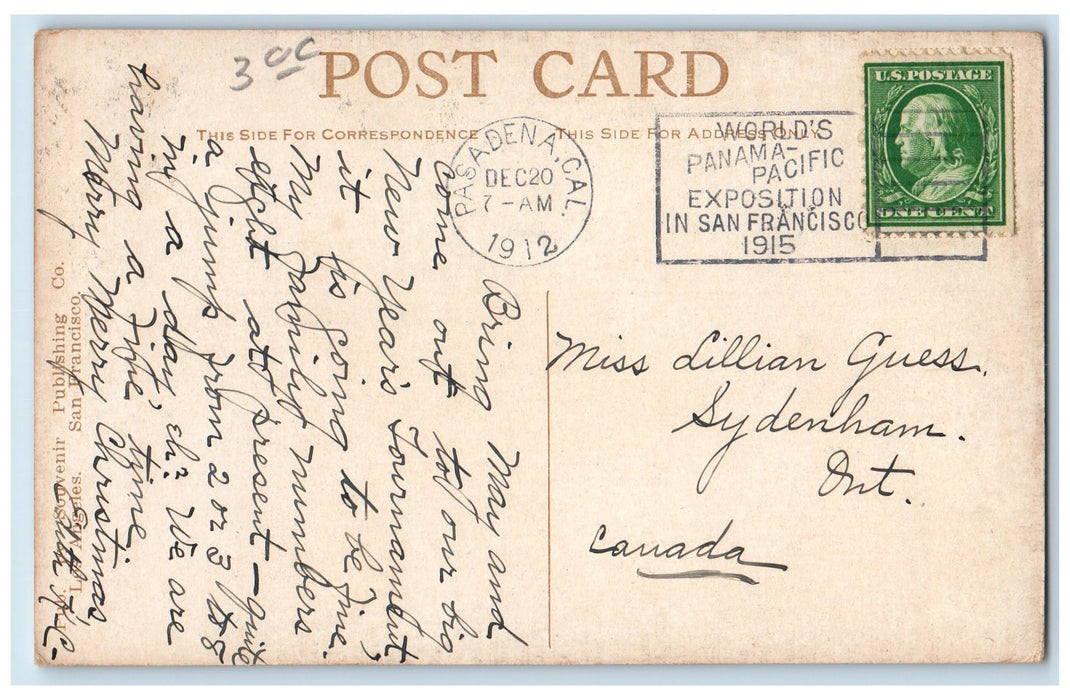 3 00
POST CARD
THIS SIDE FOR CORRESPONDENCE
THIS SIDE FOR ADDRESS ONLY
PASADENA, CAL.
DEC 20
7-AM
1912
WORLD'S
PANAMA-
PACIFIC
EXPOSITION
IN SAN FRANCISCO
1915
U.S. POSTAGE
ONE CENT
Bring May and
come out to our big
New Year's Tournament,
it is going to be fine.
My family numbers
eight at present - quite
a jump from 2 or 3 to 8
in a day eh? We are
having a fine time.
Merry Merry Christmas,
Miss Lillian Guess.
Sydenham.
Ont.
Canada
Souvenir Publishing Co.
Los Angeles. San Francisco.